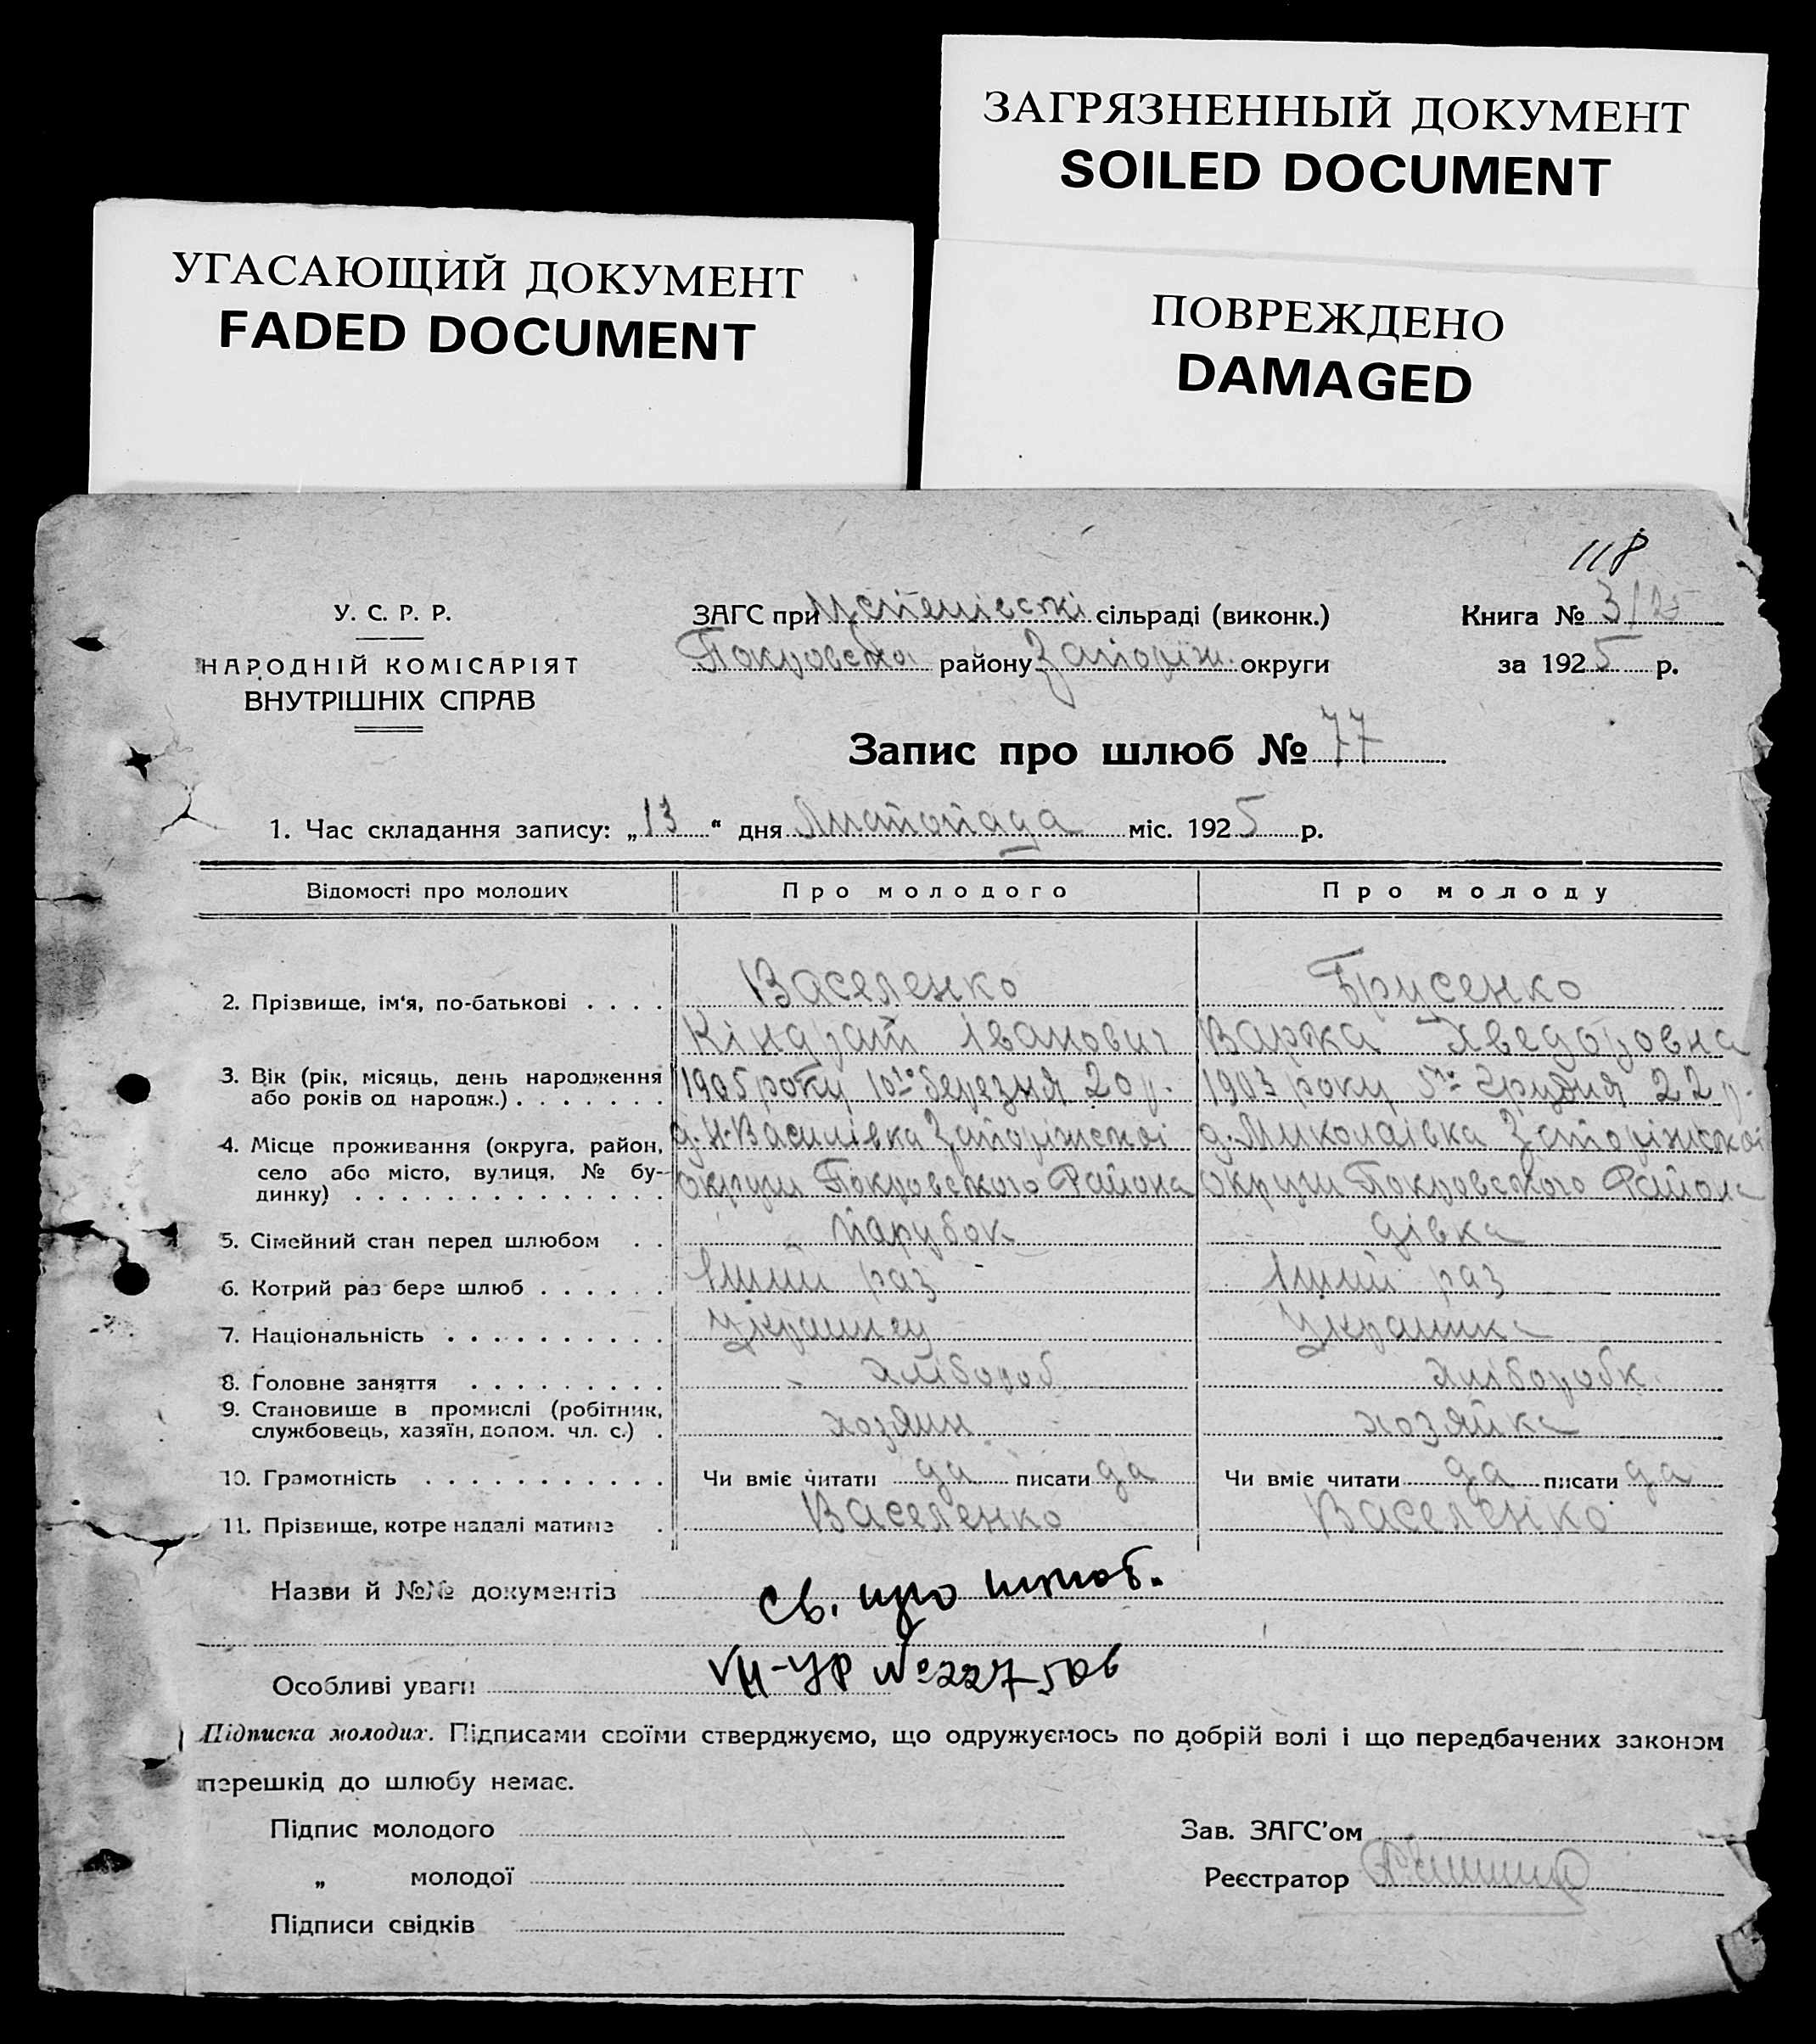 ЗАГРЯЗНЕННЫЙ ДОКУМЕНТ
SOILED DOCUMENT
УГАСАЮЩИЙ ДОКУМЕНТ
FADED DOCUMENT
ПОВРЕЖДЕНО
DAMAGED
118
У. С. Р. Р.
НАРОДНІЙ КОМІСАРІЯТ
ВНУТРІШНІХ СПРАВ
ЗАГС при сільраді (виконк.)
Покровского району Запоріж. округи
Книга № 3/25
за 1925 р.
Запис про шлюб № 77
1. Час складання запису: „13“ дня Листопада міс. 1925 р.
Відомості про молодих Про молодого Про молоду
2. Прізвище, ім'я, по-батькові . . . . Васеленко Грусенко
Кіндрат Іванович Варка Хведоровна
3. Вік (рік, місяць, день народження
або років од народж.) . . . . . . . 1905 року 10го березня 20 р. 1903 року 5го Грудня 22 р.
4. Місце проживання (округа, район, д. Н-Василівка Запоріжскої д. Миколаівка Запоріжскої
село або місто, вулиця, № бу-
динку) . . . . . . . . . . . . . . округи Покровского Района округи Покровского Района
5. Сімейний стан перед шлюбом . . парубок дівка
6. Котрий раз бере шлюб . . . . . . 1ший раз 1ший раз
7. Національність . . . . . . . . . . Українец Українка
8. Головне заняття . . . . . . . . . хлібороб хліборобк.
9. Становище в промислі (робітник,
службовець, хазяїн, допом. чл. с.) . хозяин хозяйка
10. Грамотність . . . . . . . . . . . Чи вміє читати да писати да Чи вміє читати да писати да
11. Прізвище, котре надалі матиме . Васеленко Васеленко
Назви й №№ документів Св. про шлюб.
Особливі уваги VII-УР № 227506
Підписка молодих. Підписами своїми стверджуємо, що одружуємось по добрій волі і що передбачених законом
перешкід до шлюбу немає.
Підпис молодого
„ молодої
Підписи свідків
Зав. ЗАГС'ом
Реєстратор